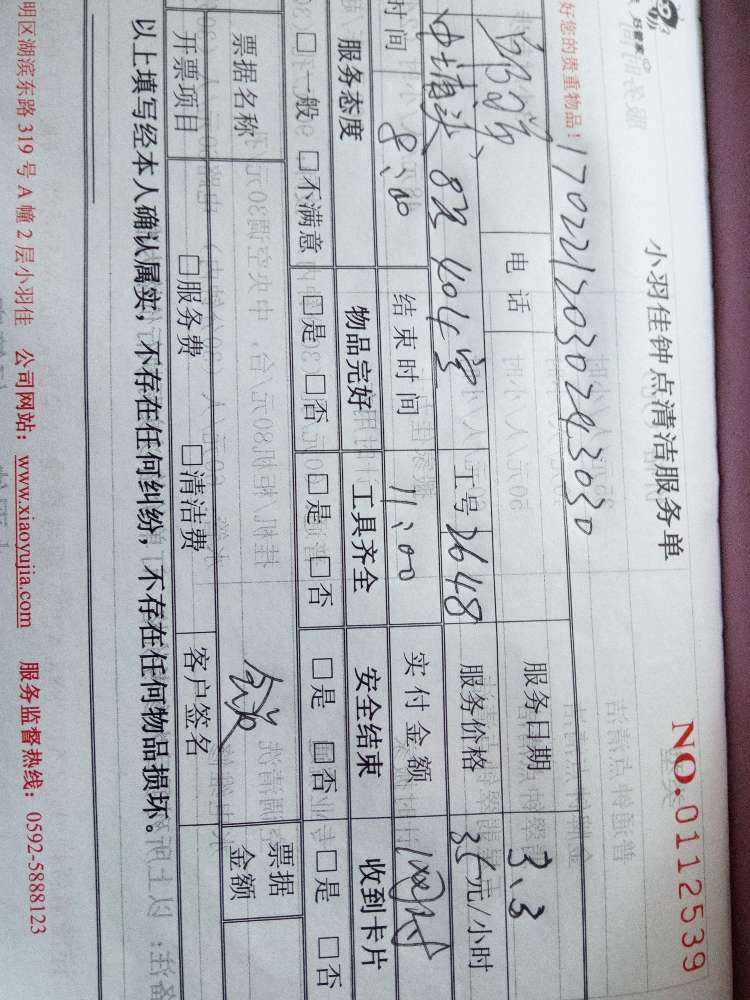 好您的贵重物品！
小羽佳钟点清洁服务单
NO. 0112539
1702212030243030
电话
服务日期
3.3
8幺404室
工号
2648
服务价格
35元/小时
时间
8:00
结束时间
11:00
实付金额
服务态度
物品完好
工具齐全
安全结束
收到卡片
□一般 □不满意
□是 □否
□是 □否
□是 □否
□是 □否
票据名称
票据金额
开票项目
□服务费
□清洁费
客户签名
以上填写经本人确认属实，不存在任何纠纷，不存在任何物品损坏。
明区湖滨东路 319 号 A 幢 2 层小羽佳 公司网站：www.xiaoyujia.com 服务监督热线：0592-5888123